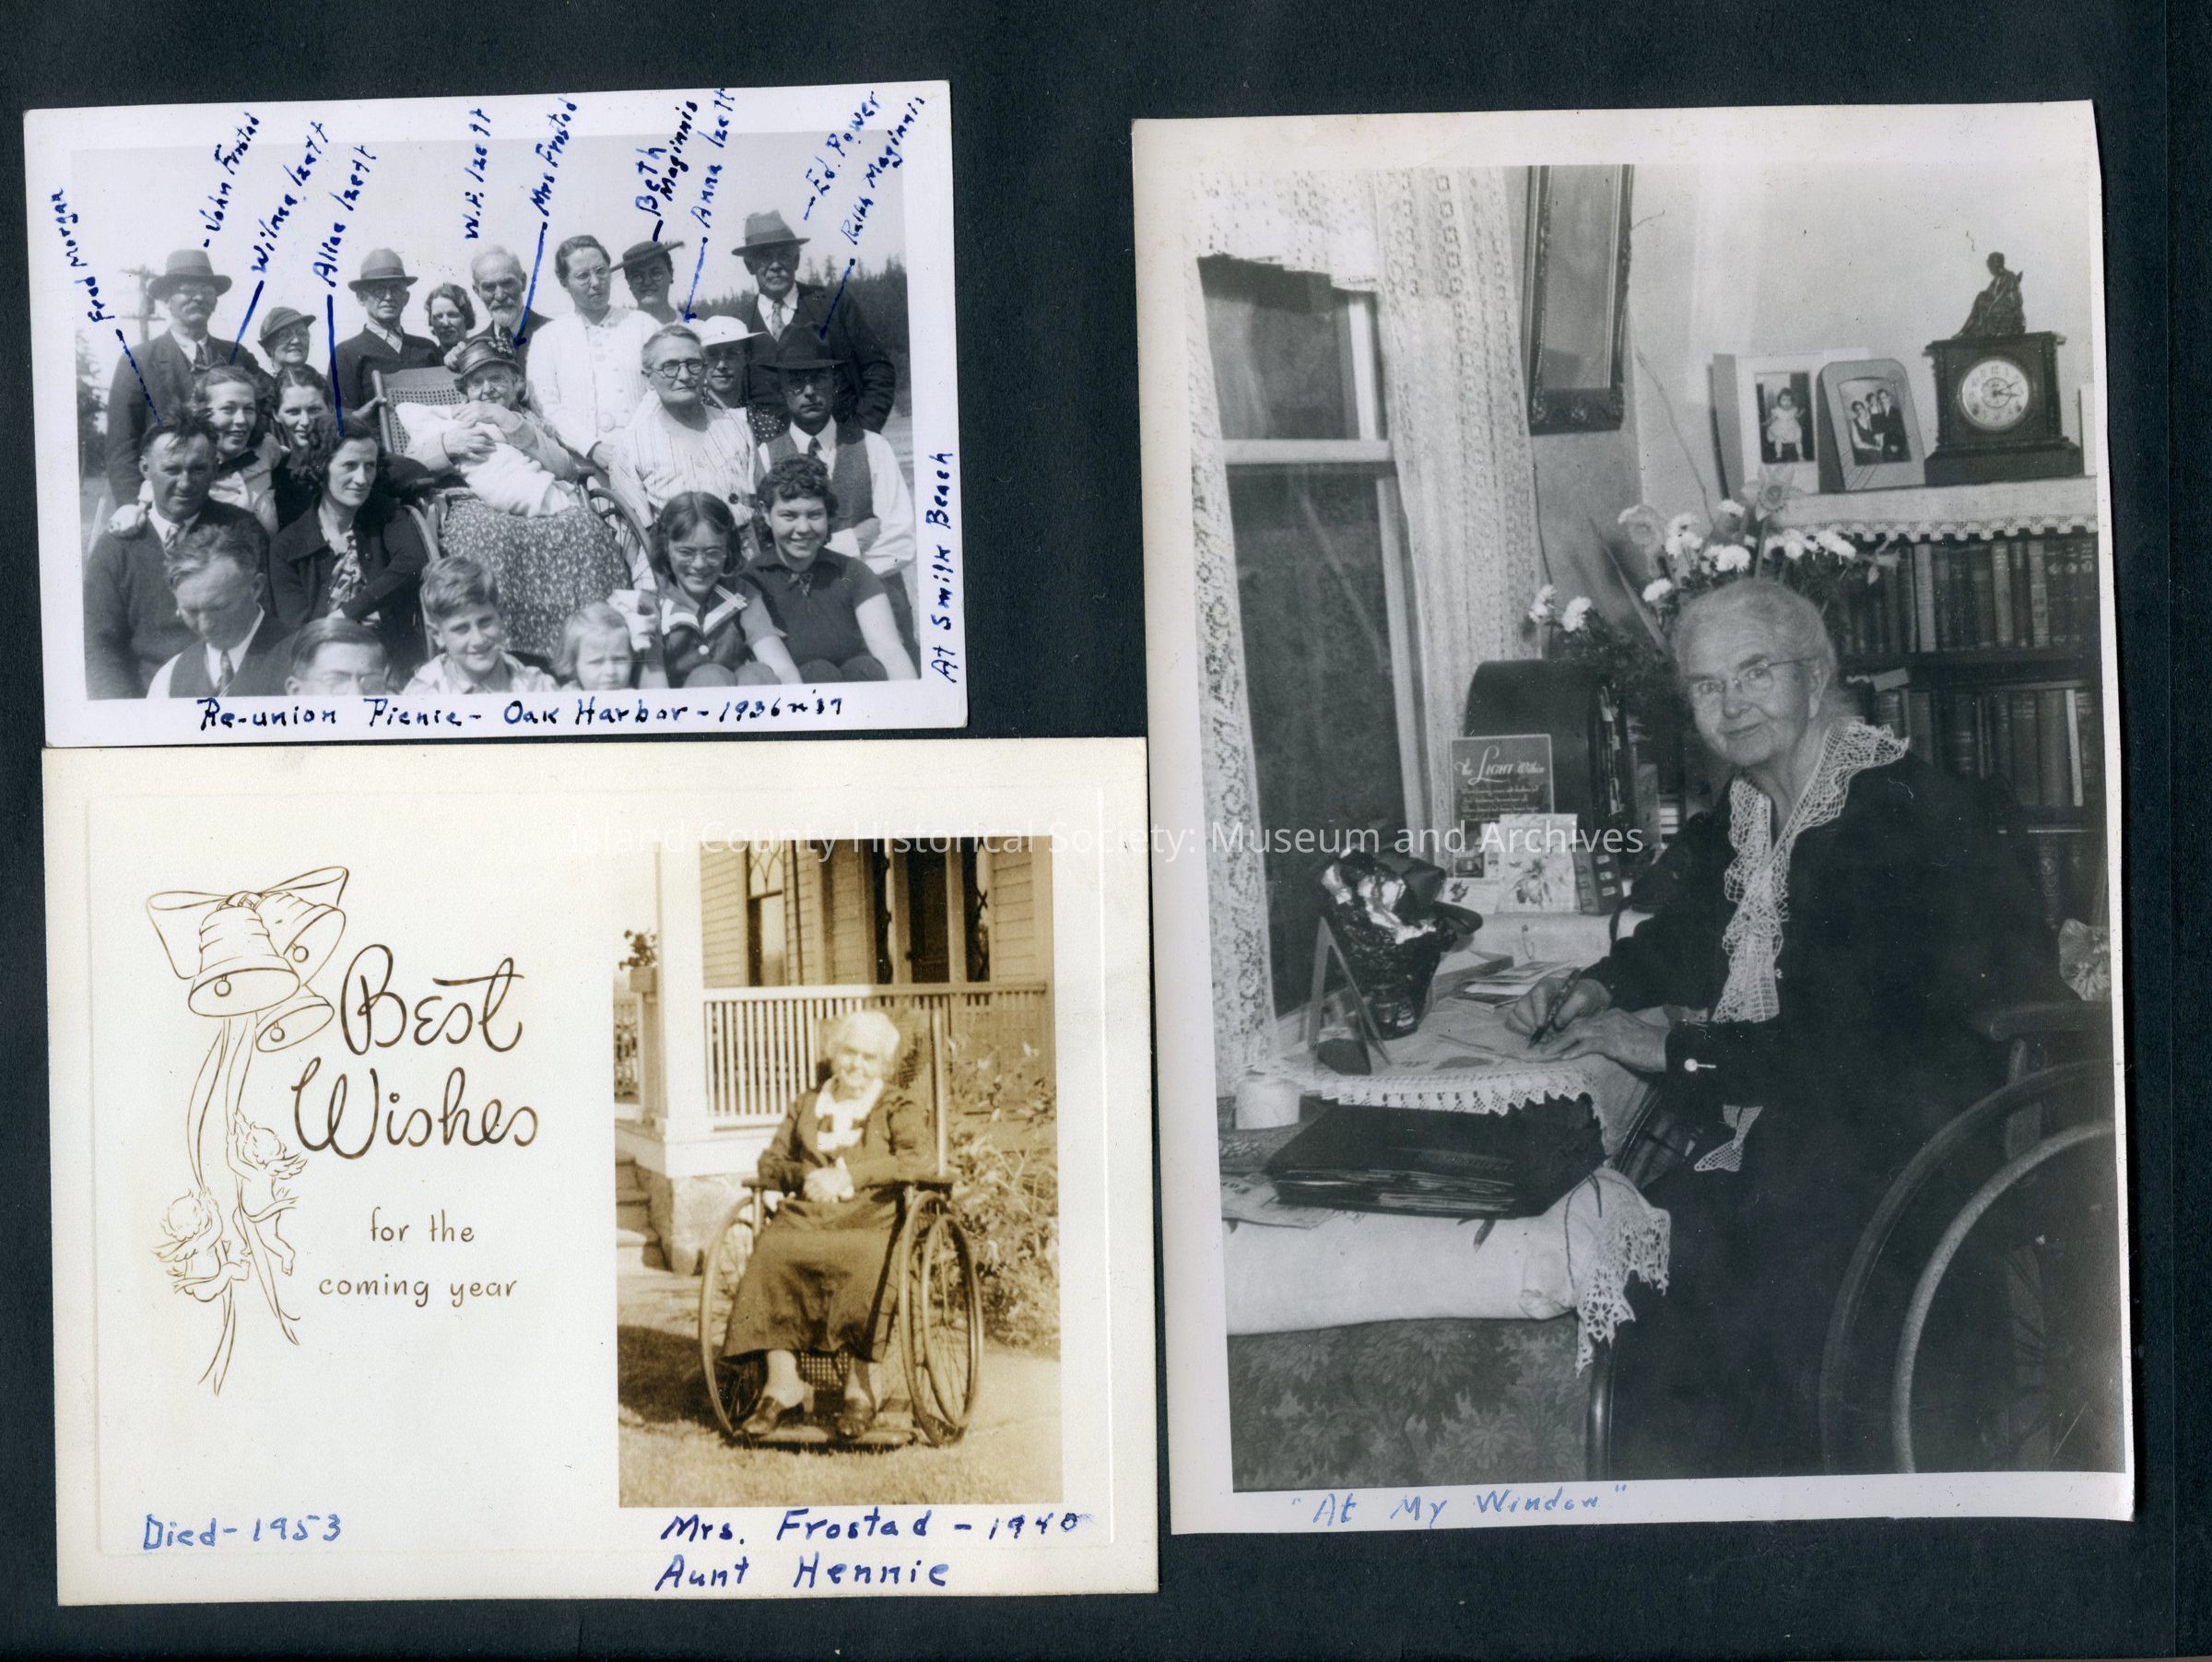 Fred Morgan
John Frostad
Wilma Izett
Allae Izett
W.F. Izett
Mrs Frostad
Beth
Maginnis
Anna Izett
Ed. Power
Ralph Maginnis
At Smilk Beach
Re-union Picnic - Oak Harbor - 1936 n '37
Island County Historical Society: Museum and Archives
Best
Wishes
for the
coming year
Died - 1953
Mrs. Frostad - 1940
Aunt Hennie
The LIGHT Within
"At My Window"